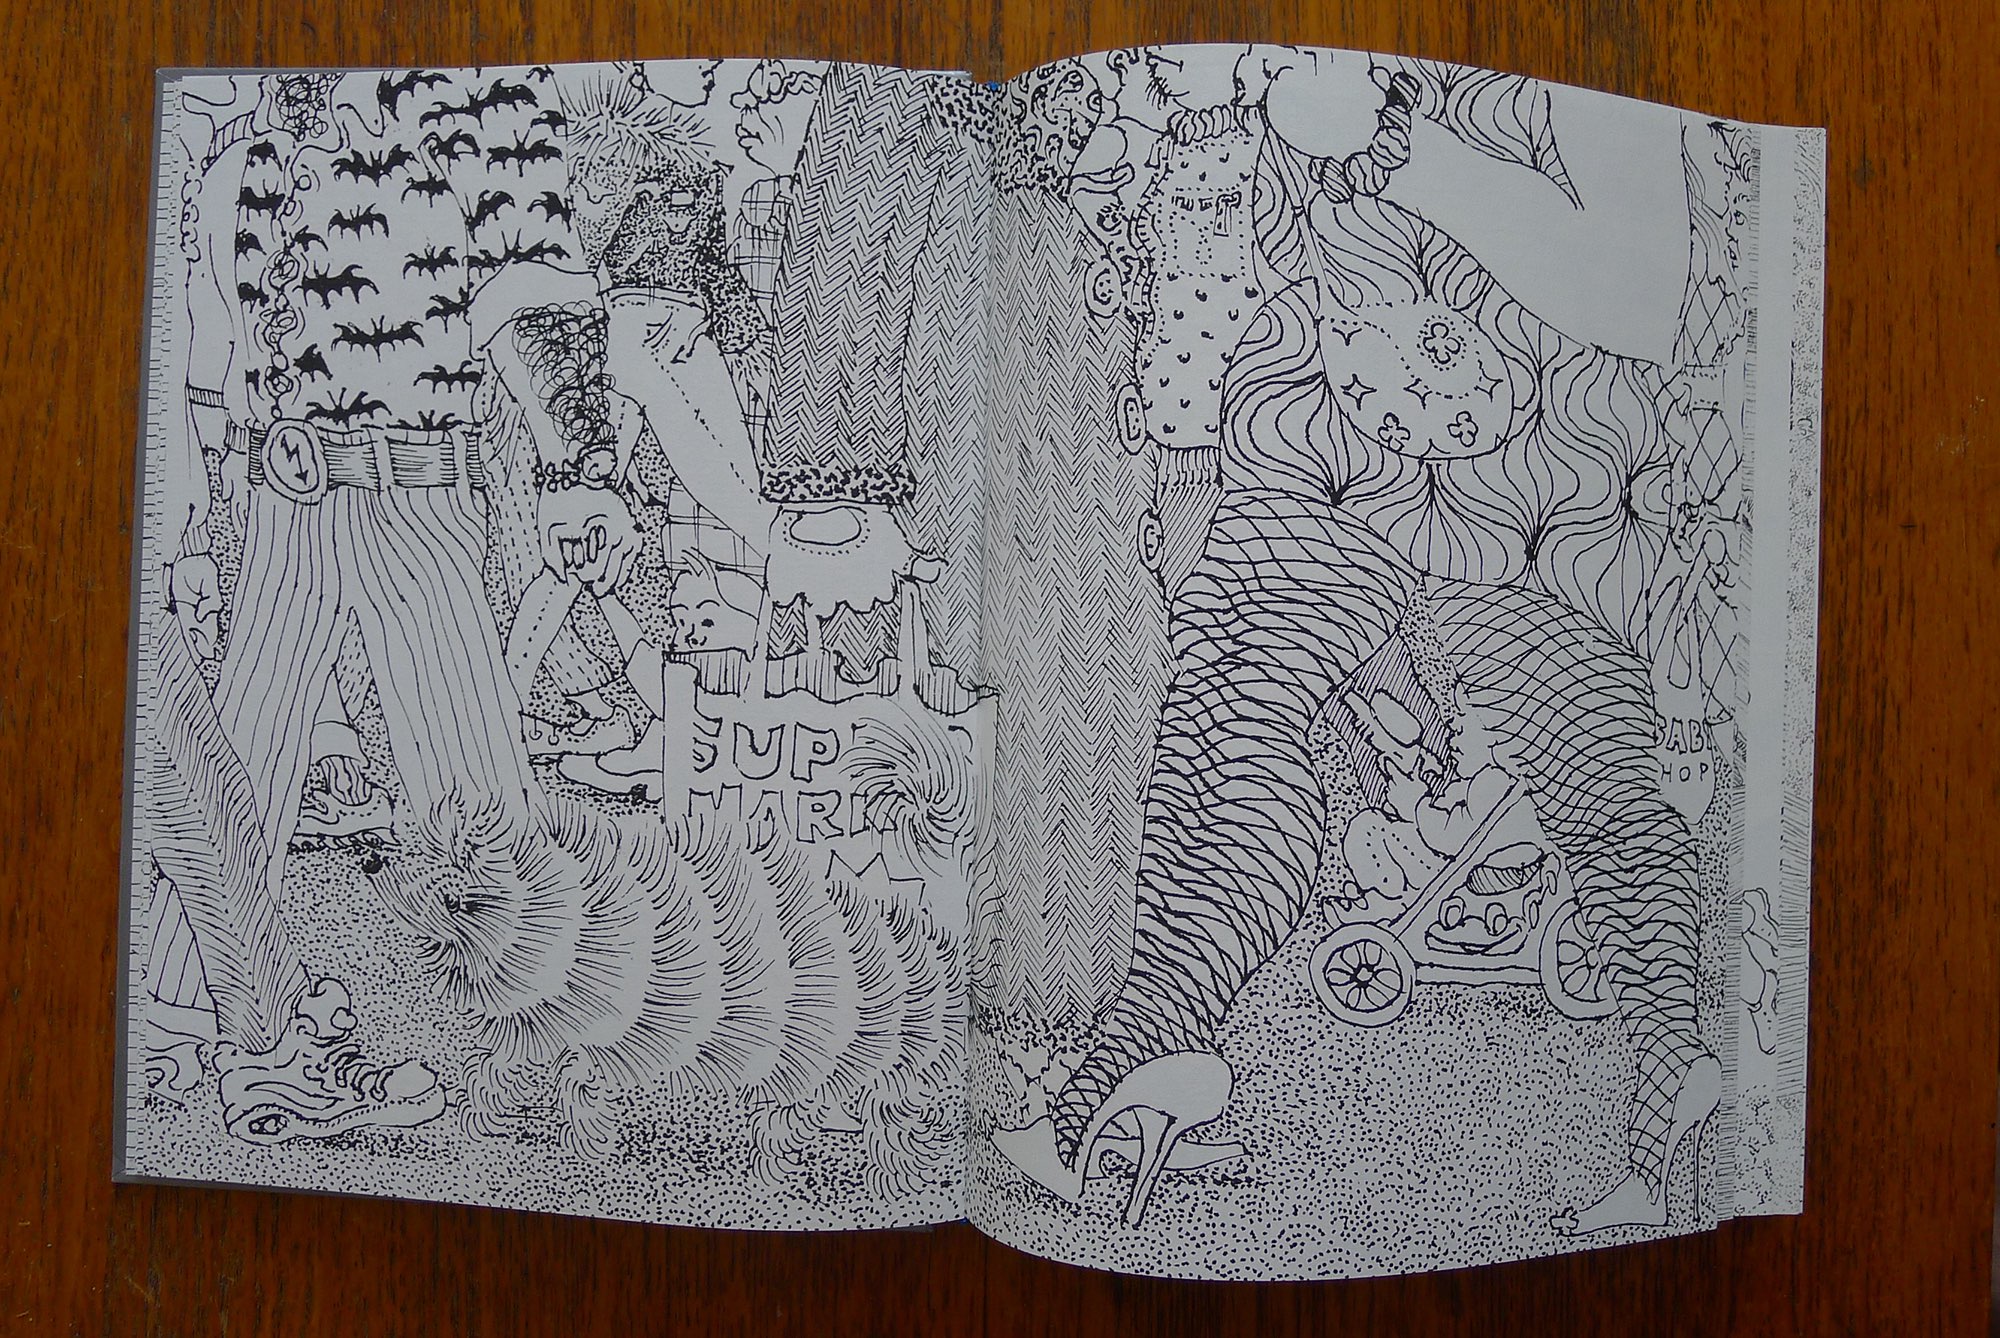 SUP
MARK
BABY
HOP